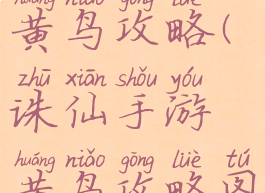 huáng niǎo gōng lüè
黄鸟攻略(
zhū xiān shǒu yóu
诛仙手游
huáng niǎo gōng lüè tú
黄鸟攻略图